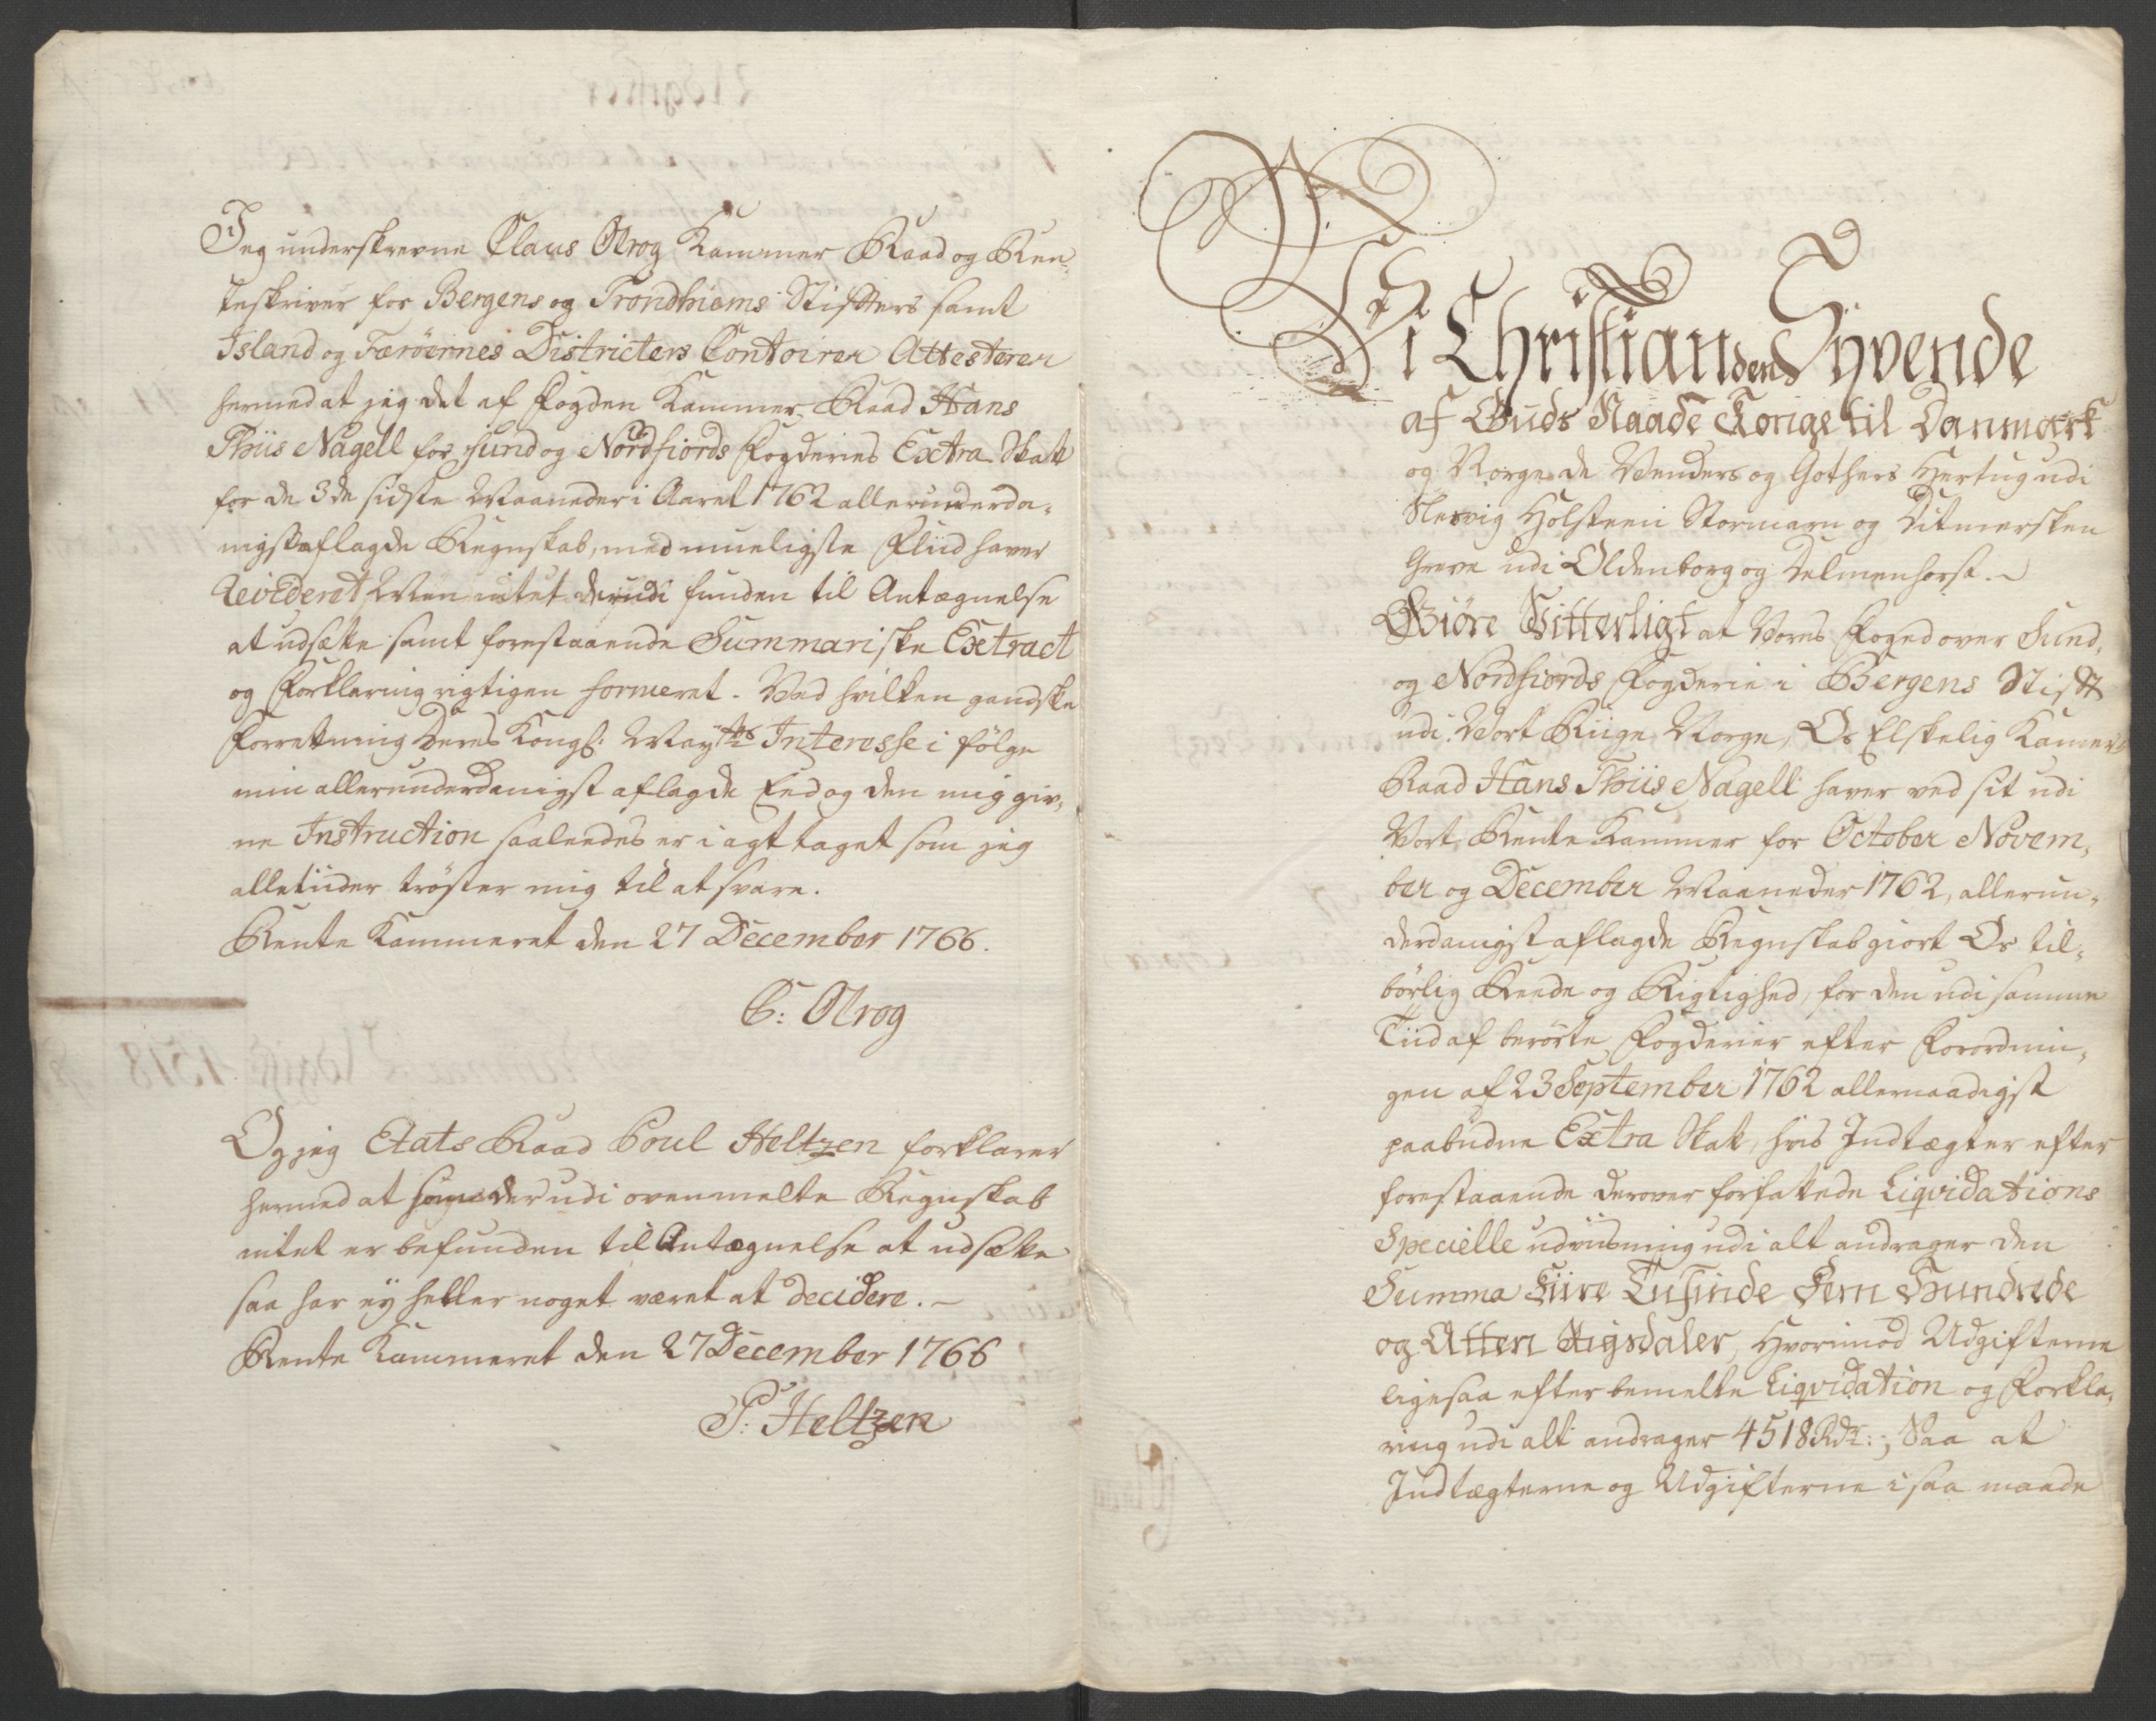 Jeg underskrevne Claus Olrog Kammer Raad og Ren-
teskriver for Bergens og Trondhiems Stifters samt
Island og Færöernes Districters Contoirer Attesterer
hermed at jeg det af Fogden Kammer-Raad Hans
Thiis Nagell for Sund og Nordfiords Fogderies Extra Skatt
for de 3de sidste Maaneder i Aaret 1762 allerunderda-
nigst aflagde Regnskab, med mueligste Fliid haver
Revideret, Men intet derudi funden til Antægnelse
at udsætte samt forestaaende Summariske Extract
og Forklaring rigtigen formeret. Ved hvilken gandske
Forretning Deres Kongl: Mayts Interesse i følge
min allerunderdanigst aflagde Eed og den mig giv-
ne Instruction saaledes er i agt taget som jeg
alletiider tröster mig til at svare.
Rente Kammeret den 27 December 1766.
C: Olrog
Og jeg Etats Raad Poul Heltzen forklarer
hermed at som derudi ovenmelte Regnskab
intet er befunden til Antægnelse at udsætte
saa har ey heller noget været at decidere.
Rente Kammeret den 27 December 1766
P: Heltzen
Vi Christian den Syvende
af Guds Naade Konge til Danmark
og Norge de Venders og Gothers Hertug udi
Slesvig Holsteen Stormarn og Ditmersken
Greve udi Oldenborg og Delmenhorst.
Giöre Vitterligt at Vores Foged over Sund-
og Nordfiords Fogderie i Bergens Stift
udi Vort Riige Norge, Os Elskelig Kamer
Raad Hans Thiis Nagell haver ved sit udi
Vort Rente Kammer for October Novem-
ber og December Maaneder 1762, allerun-
derdanigst aflagde Regnskab giort Os til-
börlig Reede og Rigtighed, for den udi samme
Tiid af berörte Fogderier efter Forordnin-
gen af 23 September 1762 allernaadigst
paabudne Extra Skatt, hvis Indtægter efter
forestaaende derover forfattede Liqvidations
Specielle udviisning udi alt andrager den
Summa Fiire Tusinde Fem Hundrede
og Atten Rigsdaler, Hvorimod Udgifterne
ligesaa efter bemelte Liqvidation og Forkla-
ring udi alt andrager 4518 Rdr:, Saa at
Indtægterne og Udgifterne i saa maade